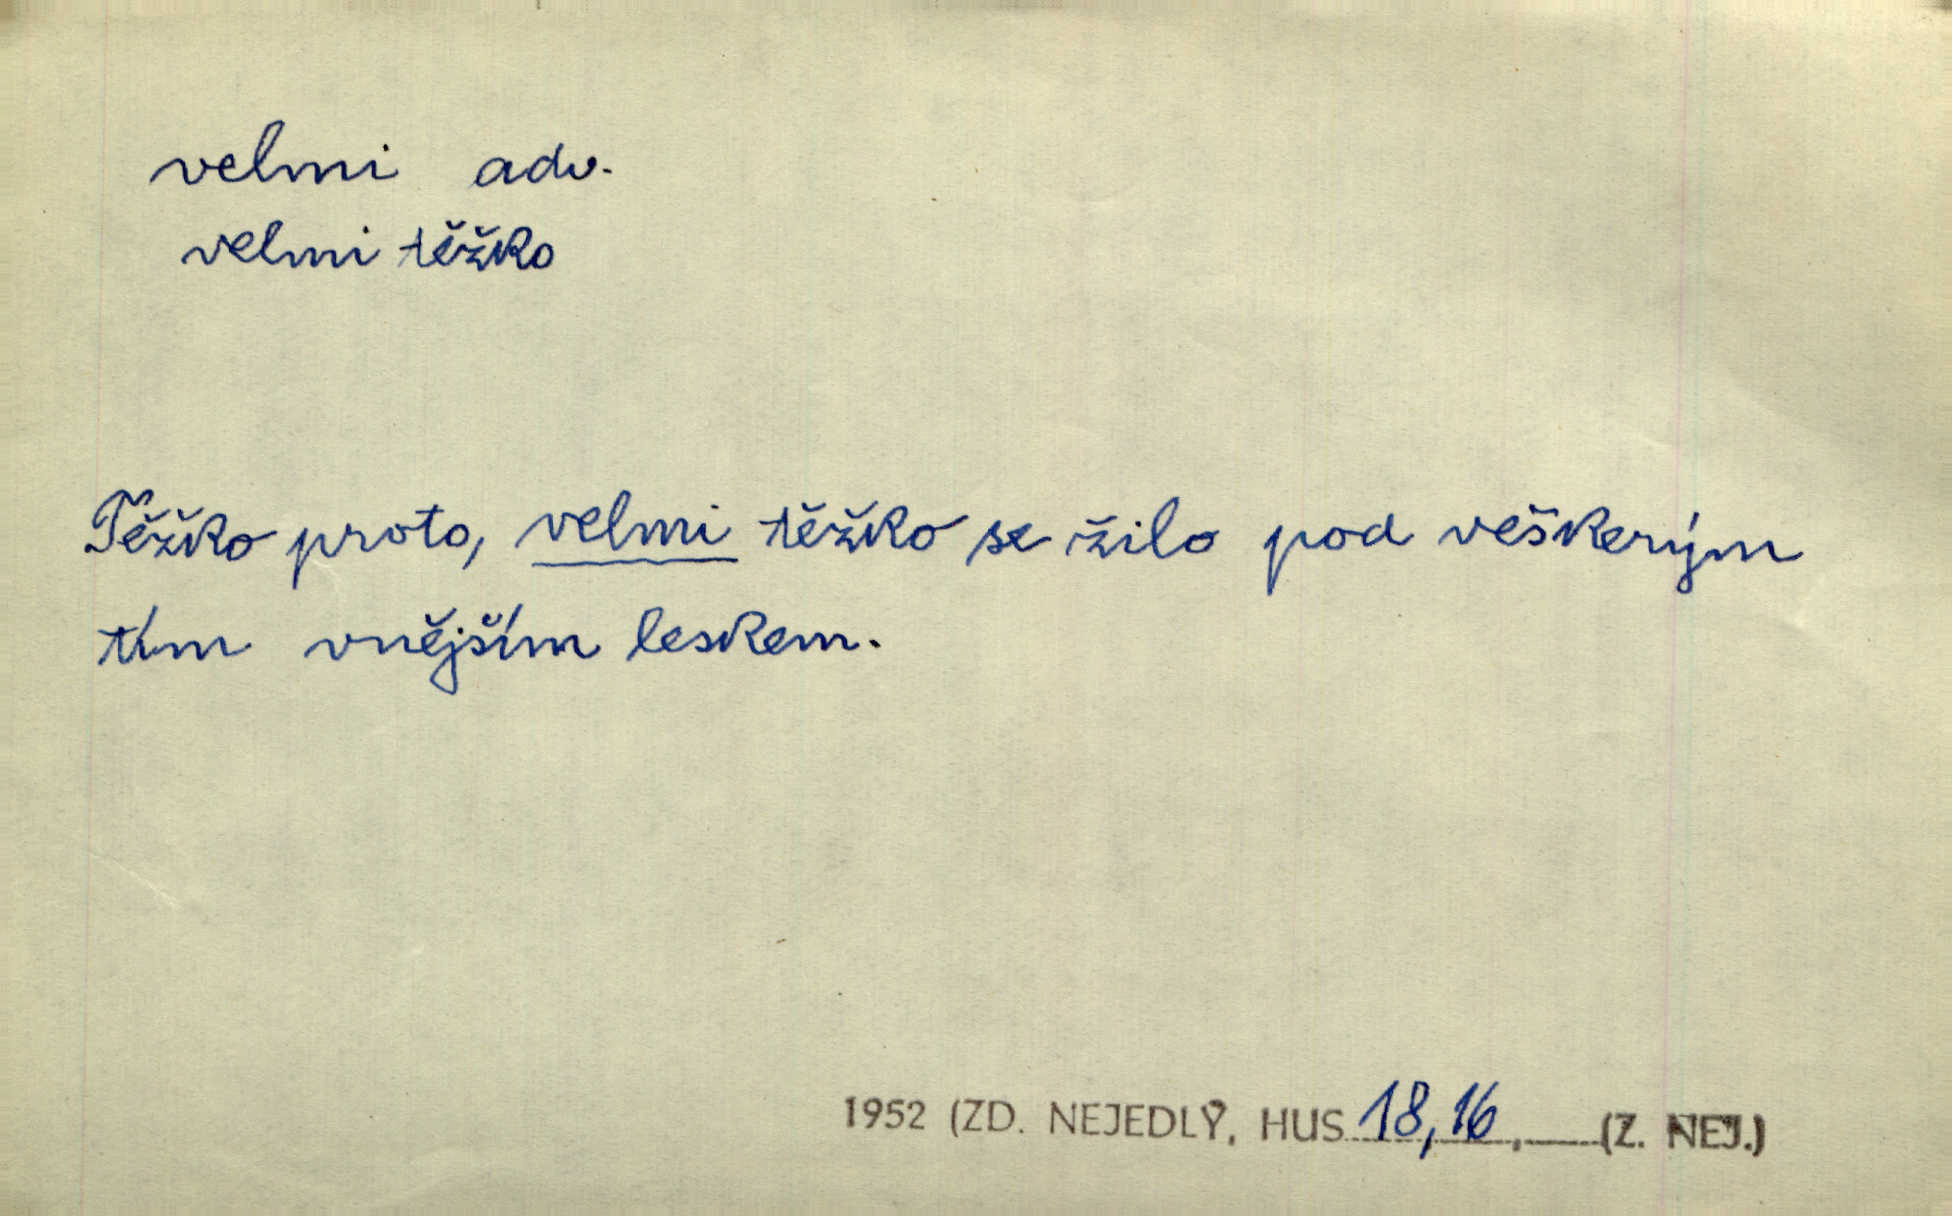 velmi adv.
velmi těžko
Těžko proto, velmi těžko se žilo pod veškerým
tím vnějším leskem.
1952 (ZD. NEJEDLÝ, HUS 18,16, (Z. NEJ.)